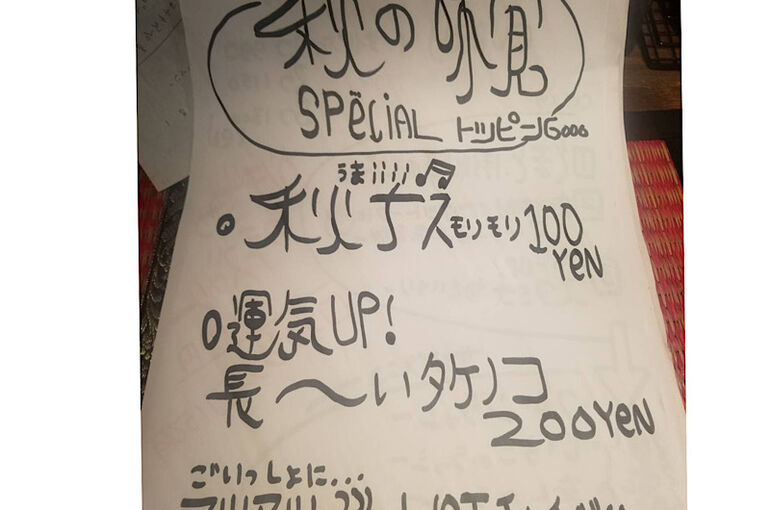 秋の味覚
SPECIAL トッピンGooo
うまiiii♫
秋ナスモリモリ100
YEN
運気UP!
長〜いタケノコ
200YEN
ごいっしょに...